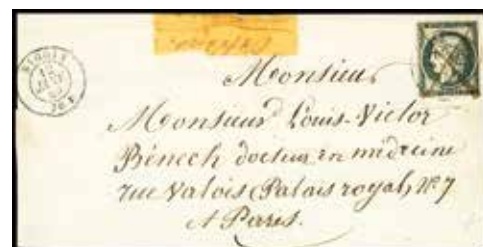 Monsieur
Monsieur Louis-Victor
Bénech docteur en médecine
rue Valois (Palais royal) N° 7
A Paris.